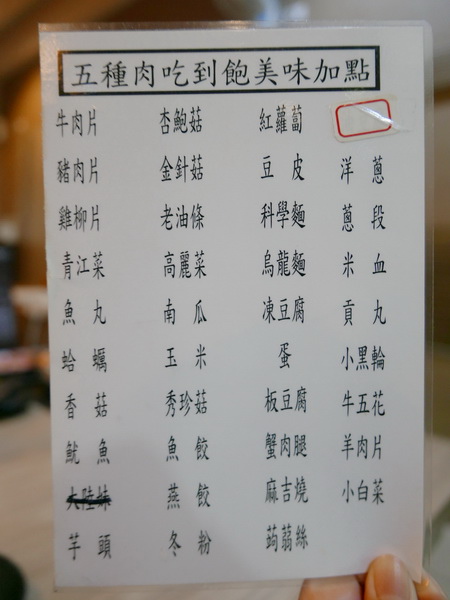 五種肉吃到飽美味加點
牛肉片 杏鮑菇 紅蘿蔔
豬肉片 金針菇 豆皮 洋蔥
雞柳片 老油條 科學麵 蔥段
青江菜 高麗菜 烏龍麵 米血
魚丸 南瓜 凍豆腐 貢丸
蛤蠣 玉米 蛋 小黑輪
香菇 秀珍菇 板豆腐 牛五花
魷魚 魚餃 蟹肉腿 羊肉片
大陸妹 燕餃 麻吉燒 小白菜
芋頭 冬粉 蒟蒻絲